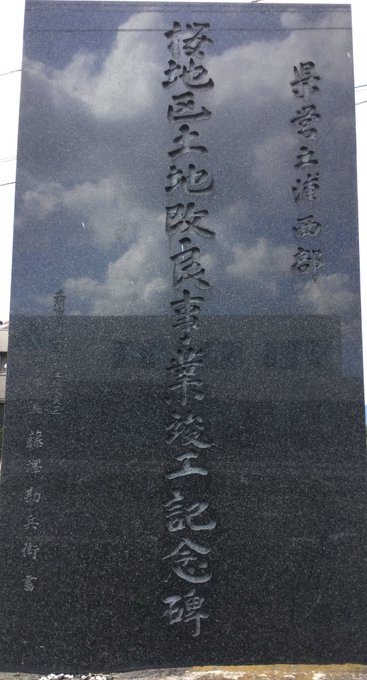 県営土浦西部
桜地区土地改良事業竣工記念碑
藤澤勘兵衛書